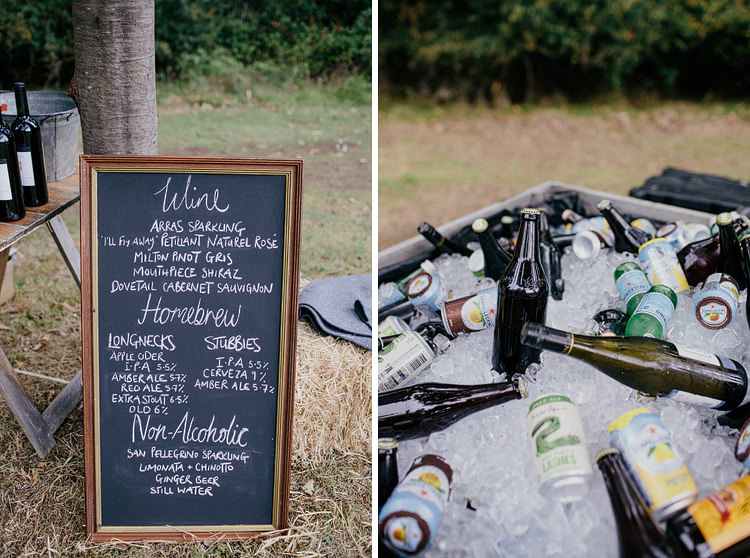 Wine
ARRAS SPARKLING
'I'LL FLY AWAY' PETILANT NATUREL ROSÉ
MILTON PINOT GRIS
MOUTHPIECE SHIRAZ
DOVETAIL CABERNET SAUVIGNON
Homebrew
LONGNECKS
APPLE CIDER
I.P.A 5.5%
AMBER ALE 5.7%
RED ALE 5.7%
EXTRA STOUT 6.5%
OLD 6%
STUBBIES
I.P.A 5.5%
CERVEZA 9%
AMBER ALE 5.7%
Non-Alcoholic
SAN PELLEGRINO SPARKLING
LIMONATA + CHINOTTO
GINGER BEER
STILL WATER
2